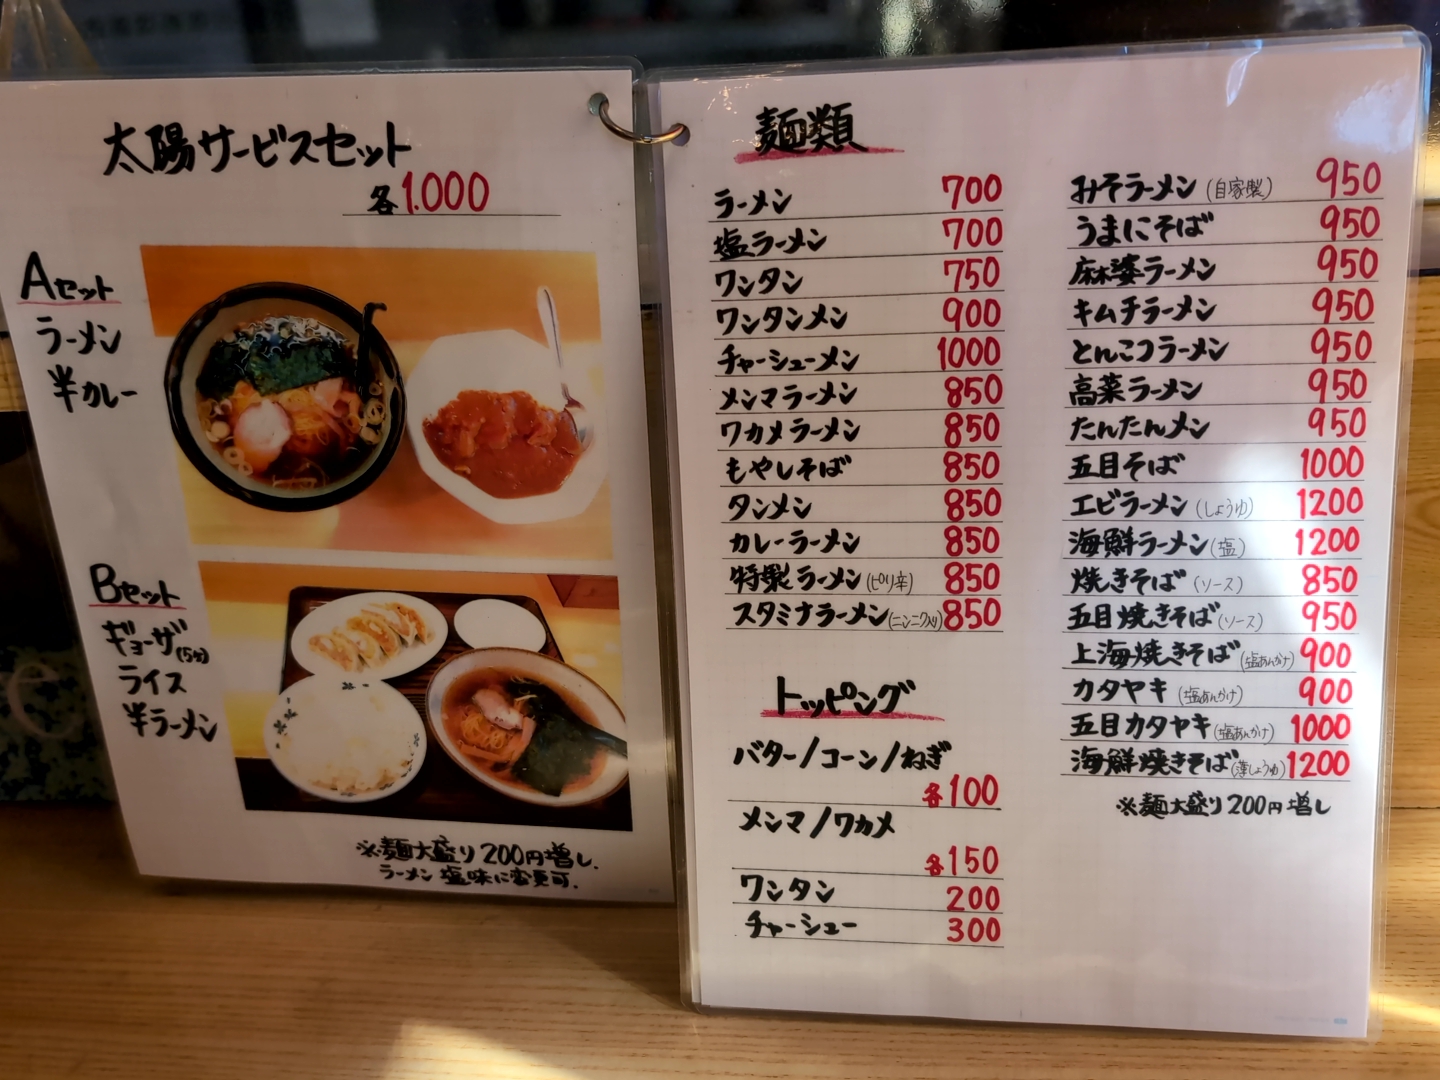 太陽サービスセット
各1.000
Aセット
ラーメン
半カレー
Bセット
ギョーザ(5ヶ)
ライス
半ラーメン
※麺大盛り200円増し.
ラーメン 塩味に変更可.
麺類
ラーメン 700
塩ラーメン 700
ワンタン 750
ワンタンメン 900
チャーシューメン 1000
メンマラーメン 850
ワカメラーメン 850
もやしそば 850
タンメン 850
カレーラーメン 850
特製ラーメン(ピリ辛) 850
スタミナラーメン(ニンニク入り) 850
トッピング
バター/コーン/ねぎ
各100
メンマ/ワカメ
各150
ワンタン 200
チャーシュー 300
みそラーメン(自家製) 950
うまにそば 950
麻婆ラーメン 950
キムチラーメン 950
とんこつラーメン 950
高菜ラーメン 950
たんたんメン 950
五目そば 1000
エビラーメン(しょうゆ) 1200
海鮮ラーメン(塩) 1200
焼きそば(ソース) 850
五目焼きそば(ソース) 950
上海焼きそば(塩あんかけ) 900
カタヤキ(塩あんかけ) 900
五目カタヤキ(塩あんかけ) 1000
海鮮焼きそば(薄しょうゆ) 1200
※麺大盛り200円増し